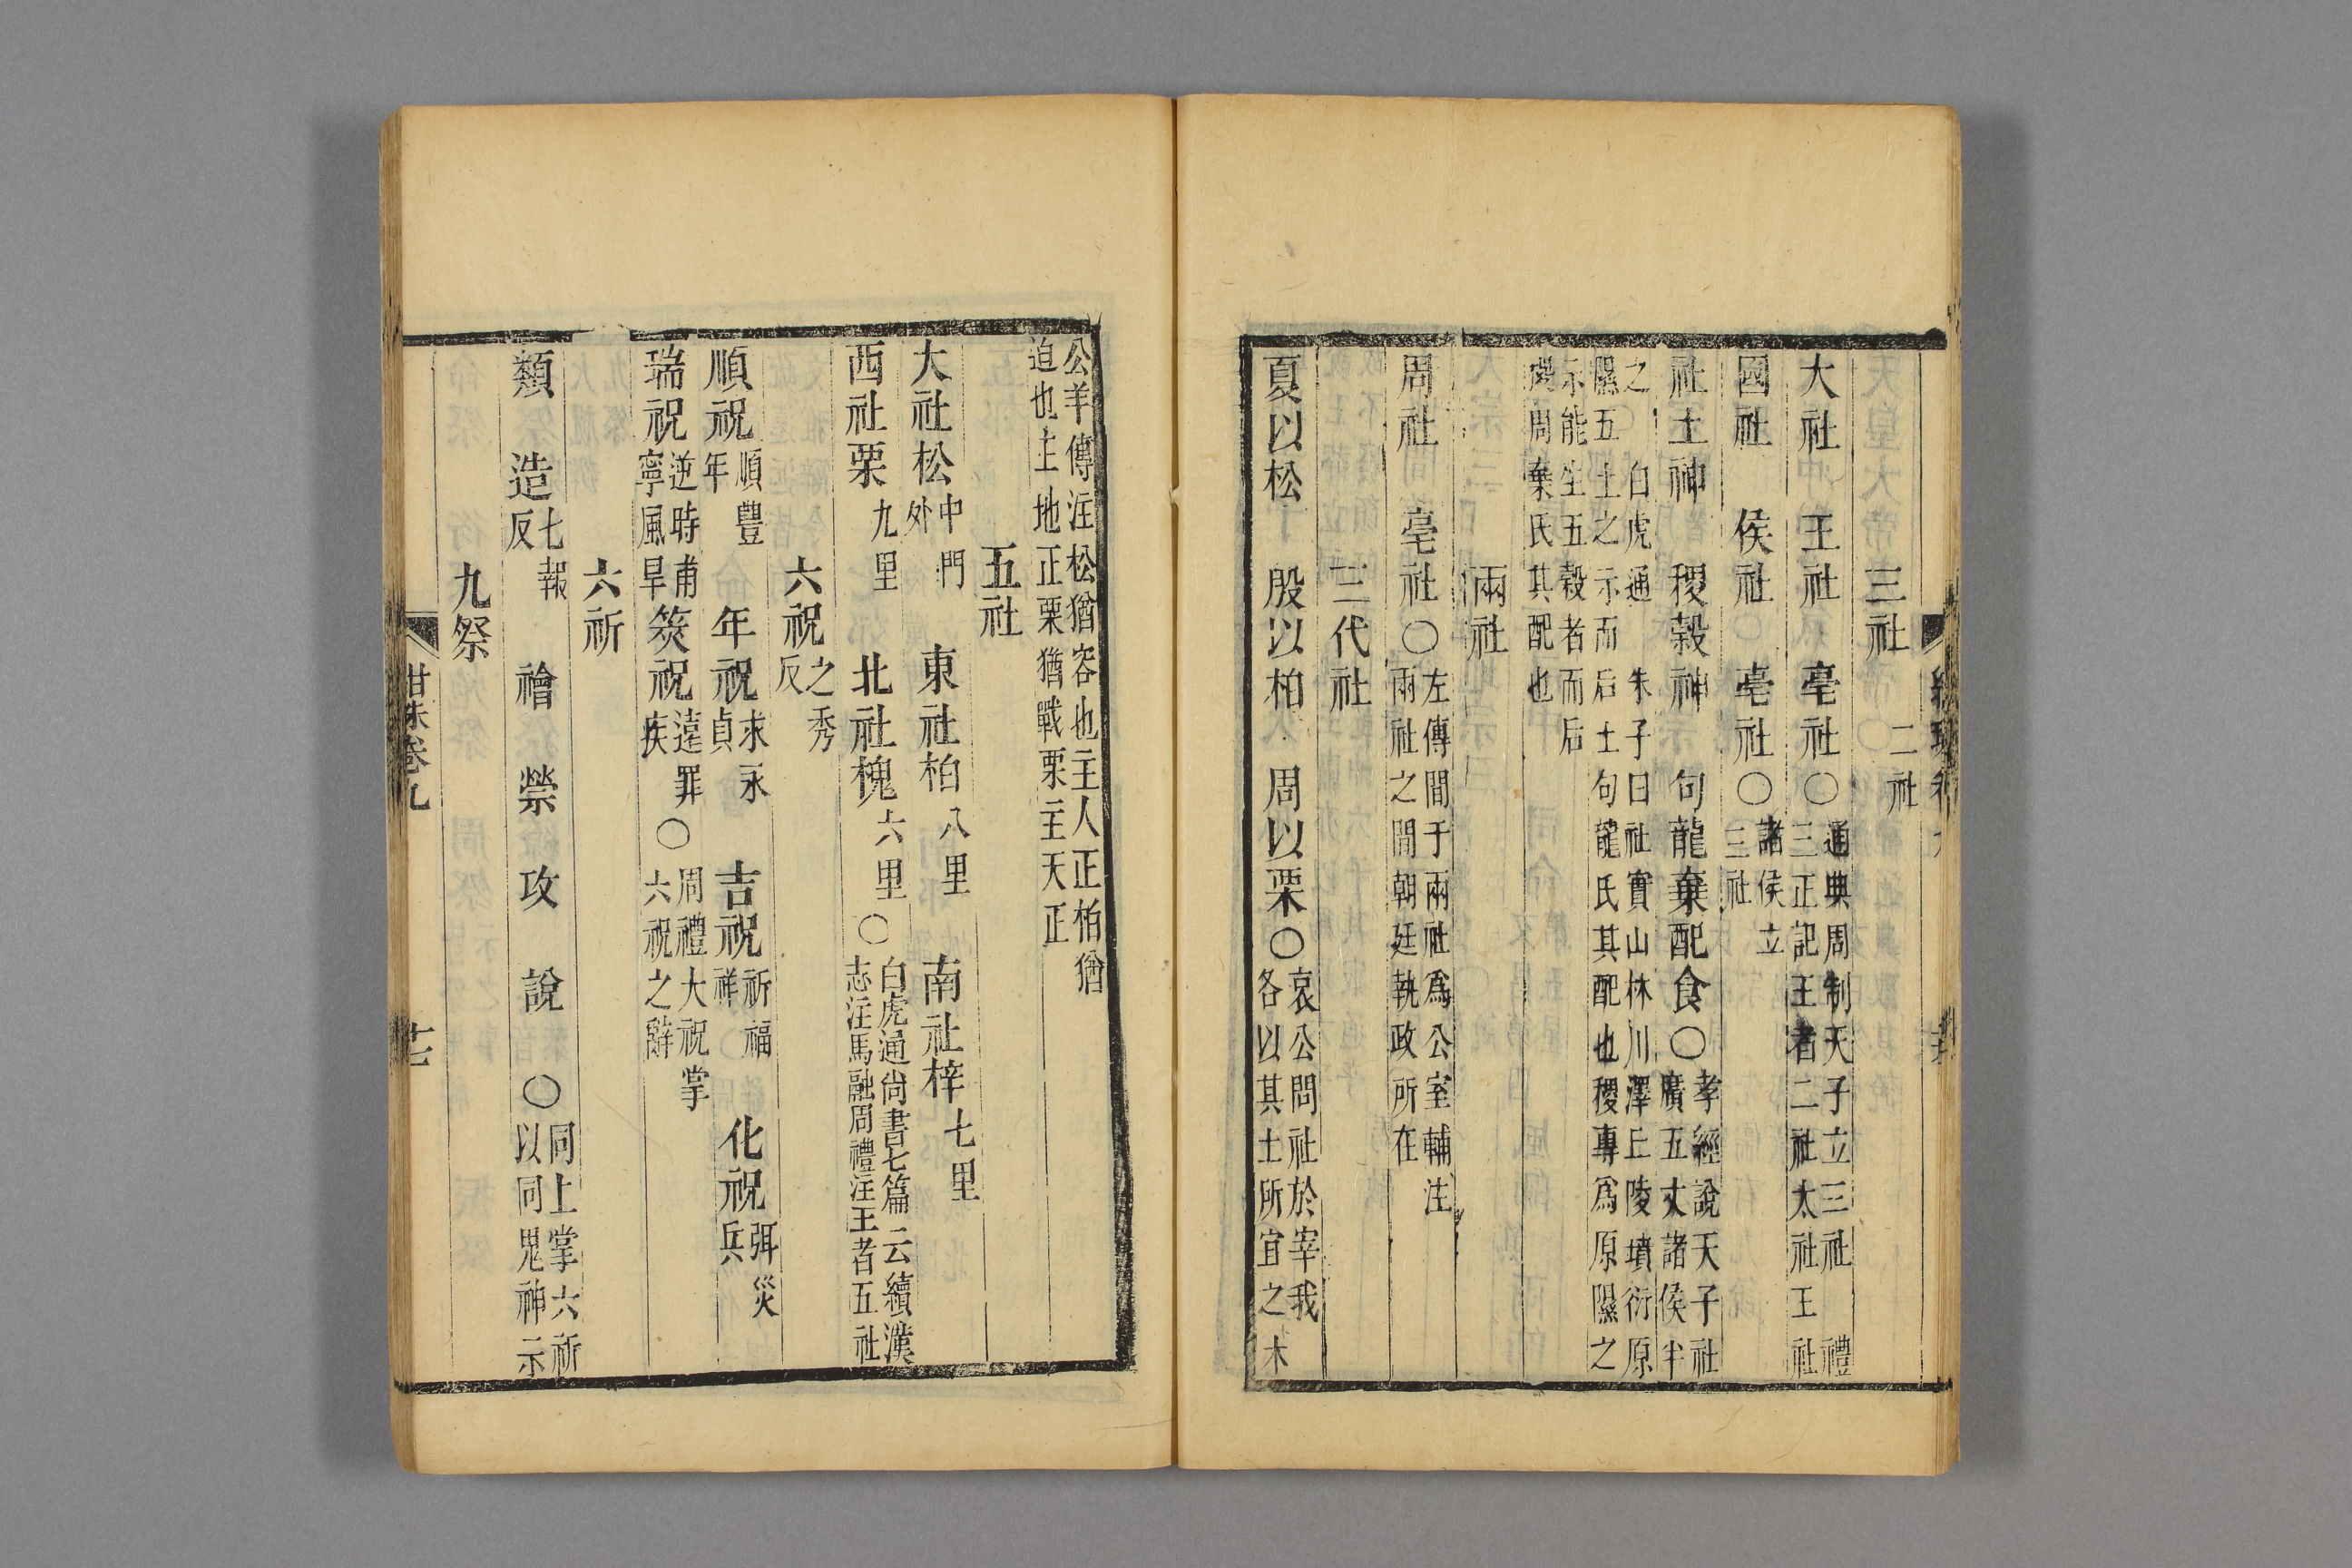 三社 二社
大社 王社 亳社〇通典周制天子立三社 禮
三正記王者二社太社王社
國社 侯社 亳社〇諸侯立
三社
社土神 稷穀神 句龍棄配食〇孝經說天子社
廣五丈諸侯半
之 白虎通 朱子曰社實山林川澤丘陵墳衍原
隰五土之示而后土句龍氏其配也稷專爲原隰之
示能生五穀者而后
稷周棄氏其配也
兩社
周社 亳社〇左傳間于兩社爲公室輔注
兩社之間朝廷執政所在
三代社
夏以松 殷以柏 周以栗〇哀公問社於宰我
各以其土所宜之木
公羊傳注松猶容也主人正柏猶
迫也主地正栗猶戰栗主天正
五社
大社松中門
外 東社柏八里 南社梓七里
西社栗九里 北社槐六里〇白虎通尚書七篇云續漢
志注馬融周禮注王者五社
六祝之秀
反
順祝順豐
年 年祝求永
貞 吉祝祈福
祥 化祝弭災
兵
瑞祝逆時甫
寧風旱 筴祝遠罪
疾〇周禮大祝掌
六祝之辭
六祈
類 造七報
反 禬 禜 攻 說 〇同上掌六祈
以同鬼神示
九祭
甘珠卷九